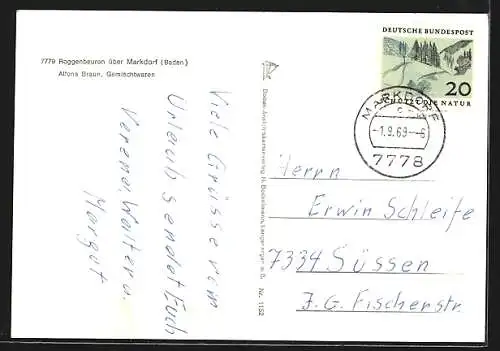 7779 Roggenbeuren über Markdorf (Baden)
Alfons Braun, Gemischtwaren
Viele Grüsse vom
Urlaub sendet Euch
Verena, Walter u.
Margot
Nr. 1152
DEUTSCHE BUNDESPOST
20
SCHÜTZT DIE NATUR
MARKDORF
-1.9.69--6
7778
Herrn
Erwin Schleife
7334 Süssen
J. G. Fischerstr.